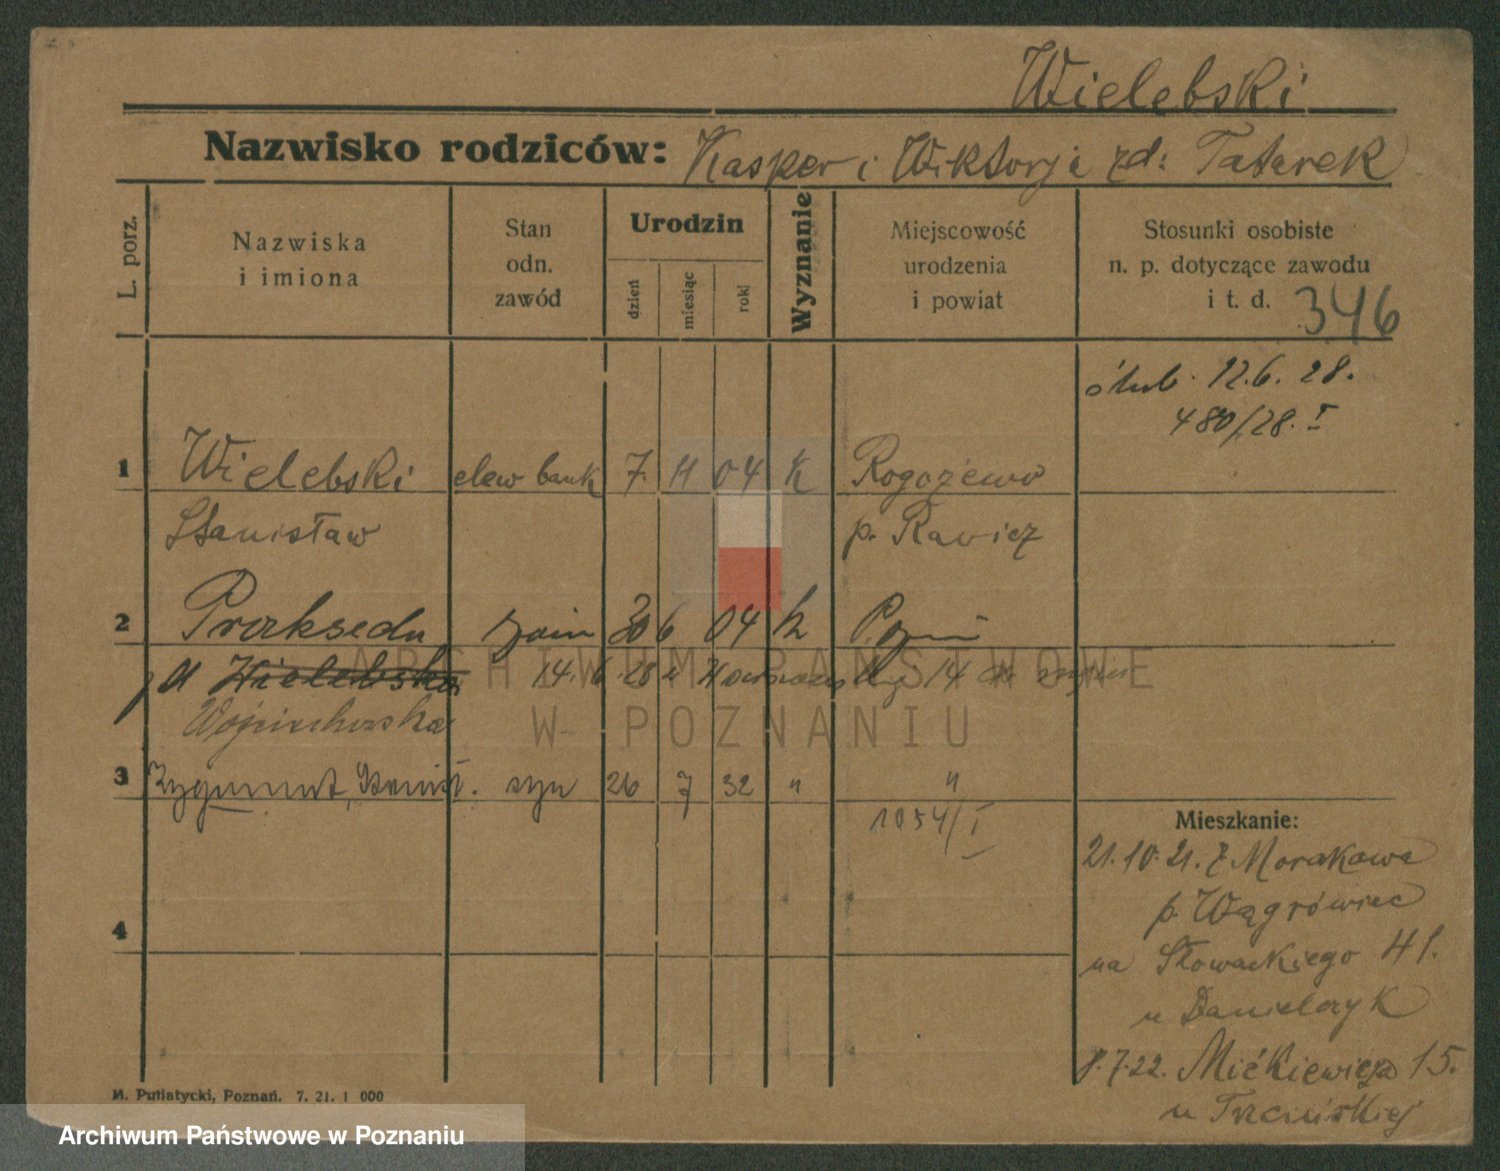 Wielebski
Nazwisko rodziców: Kasper i Wiktorja zd: Tatarek
L. porz.
Nazwiska
i imiona
Stan
odn.
zawód
Urodzin
dzień
miesiąc
rok
Wyznanie
Miejscowość
urodzenia
i powiat
Stosunki osobiste
n. p. dotyczące zawodu
i t. d. 346
ślub. 12.6. 28.
480/28. I
1 Wielebski elew bank 7. 11 04 K Rogożewo
Stanisław p. Rawicz
2 Prakseda 6 04 K
Wielebska 14. 6. 28 14
Wojciechowska
3 Zygmunt, syn 26 7 32 " "
1054/I
4
Mieszkanie:
21.10.21. z Morakowa
p. Wągrówiec
na Słowackiego
u Danielczyk
8.7.22. Mićkiewicza 15.
u Trzcińskiej
M. Putiatycki, Poznań. 7. 21. 1 000
ARCHIWUM PAŃSTWOWE
W POZNANIU
Archiwum Państwowe w Poznaniu